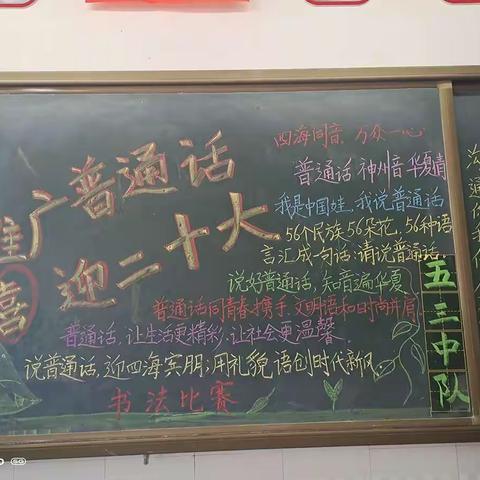 推广普通话
喜迎二十大
四海同音 万众一心
普通话 神州音 华夏情
我是中国娃,我说普通话
56个民族56朵花,56种语
言汇成一句话:请说普通话,
说好普通话,知音遍华夏
普通话同青春携手,文明语和时尚并肩
普通话,让生活更精彩,让社会更温馨.
说普通话,迎四海宾朋;用礼貌语创时代新风
书法比赛
五三中队